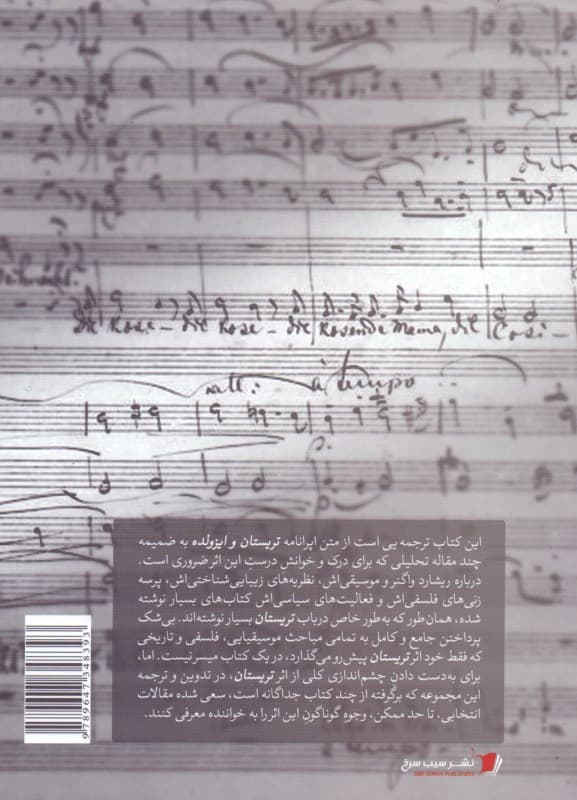 die Rose — die Rose — die kosende Mama, die Cosi —
rall: a tempo
p.
این کتاب ترجمه یی است از متن اپرانامه تریستان و ایزولده به ضمیمه
چند مقاله تحلیلی که برای درک و خوانش درستِ این اثر ضروری است.
درباره ریشارد واگنر و موسیقی‌اش، نظریه‌های زیبایی‌شناختی‌اش، پرسه
زنی‌های فلسفی‌اش و فعالیت‌های سیاسی‌اش کتاب‌های بسیار نوشته
شده، همان‌طور که به‌طور خاص درباب تریستان بسیار نوشته‌اند. بی‌شک
پرداختن جامع و کامل به تمامی مباحث موسیقیایی، فلسفی و تاریخی
که فقط خود اثر تریستان پیش‌رو می‌گذارد، در یک کتاب میسر نیست. اما،
برای به‌دست دادن چشم‌اندازی کلی از اثر تریستان، در تدوین و ترجمه
این مجموعه که برگرفته از چند کتاب جداگانه است، سعی شده مقالات
انتخابی، تا حد ممکن، وجوه گوناگونِ این اثر را به خواننده معرفی کنند.
9789647348393
نشر سیب سرخ
SIBE SORKH PUBLISHERS